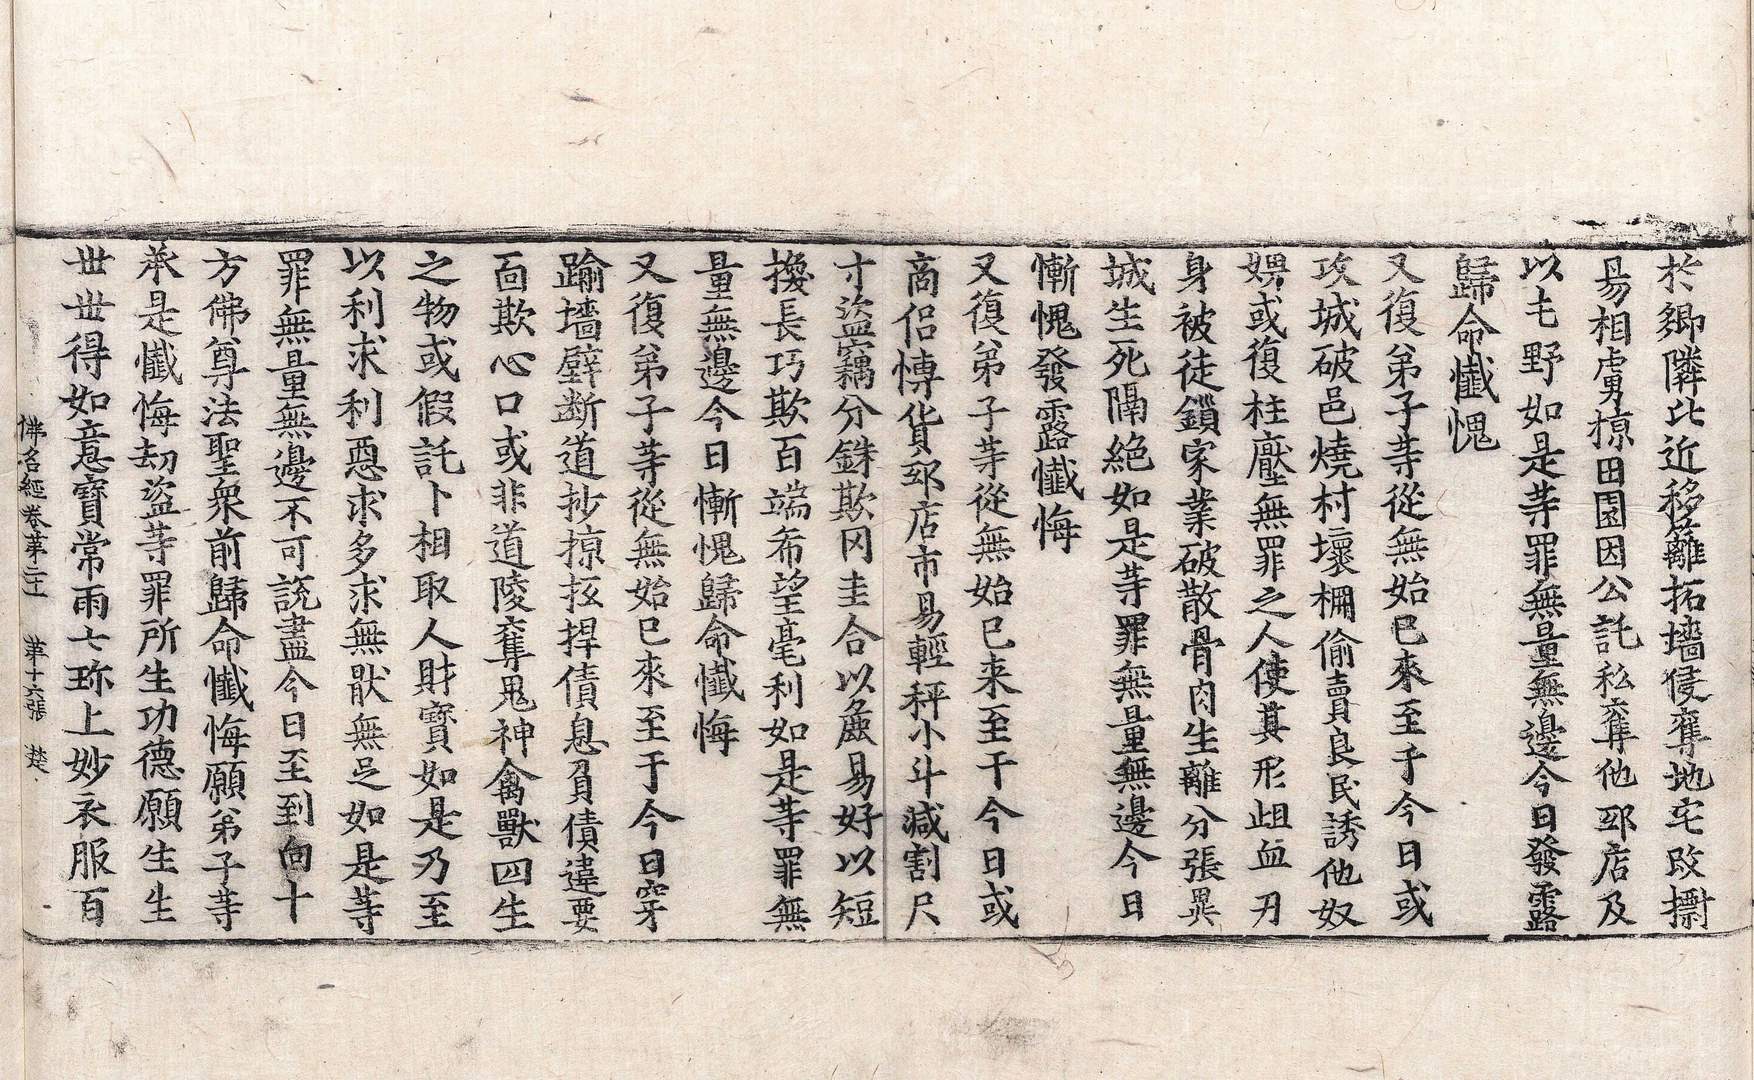 於鄉隣比近移蘺拓墻侵奪地宅改𢷤
易相虜掠田園因公託私奪他邸店及
以屯野如是等罪無量無邊今日發露
歸命懺愧
又復弟子等從無始已來至于今日或
攻城破邑燒村壞柵偷賣良民誘他奴
婢或復枉壓無罪之人使其形俎血刃
身被徒鎖家業破散骨肉生離分張異
城生死隔絕如是等罪無量無邊今日
慚愧發露懺悔
又復弟子等從無始已來至于今日或
商侶博貨邸店市易輕秤小斗減割尺
寸盜竊分銖欺罔圭合以麁易好以短
換長巧欺百端希望毫利如是等罪無
量無邊今日慚愧歸命懺悔
又復弟子等從無始已來至于今日穿
踰墻壁斷道抄掠抂捍債息負債違要
面欺心口或非道陵奪鬼神禽獸四生
之物或假託卜相取人財寶如是乃至
以利求利惡求多求無猒無足如是等
罪無量無邊不可說盡今日至到向十
方佛尊法聖衆前歸命懺悔願弟子等
承是懺悔劫盜等罪所生功德願生生
世世得如意寶常雨七珎上妙衣服百
佛名經卷第二十 第十六張 楚